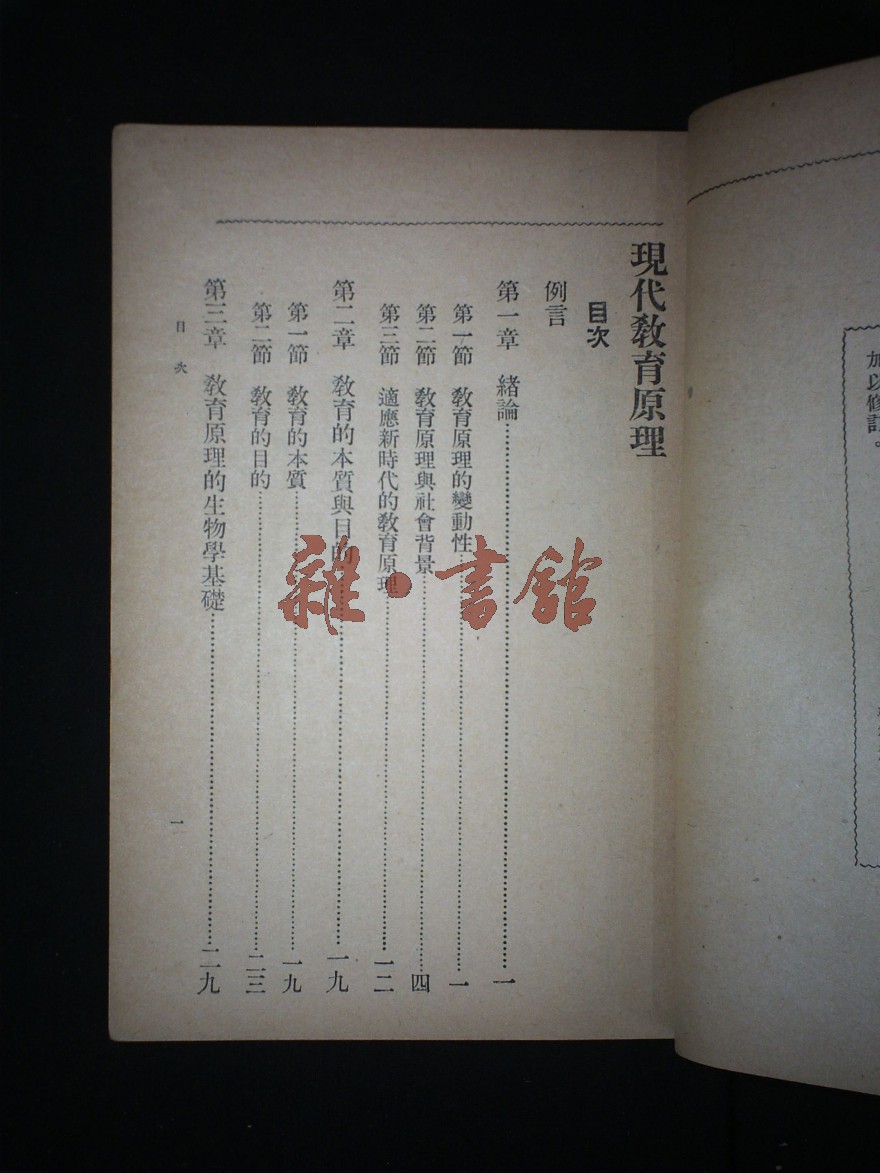 加以修訂。
現代教育原理
目次
例言
第一章 緒論…………一
第一節 教育原理的變動性…………一
第二節 教育原理與社會背景…………四
第三節 適應新時代的教育原理…………一二
第二章 教育的本質與目的…………一九
第一節 教育的本質…………一九
第二節 教育的目的…………二三
第三章 教育原理的生物學基礎…………二九
目次
一
雜·書館